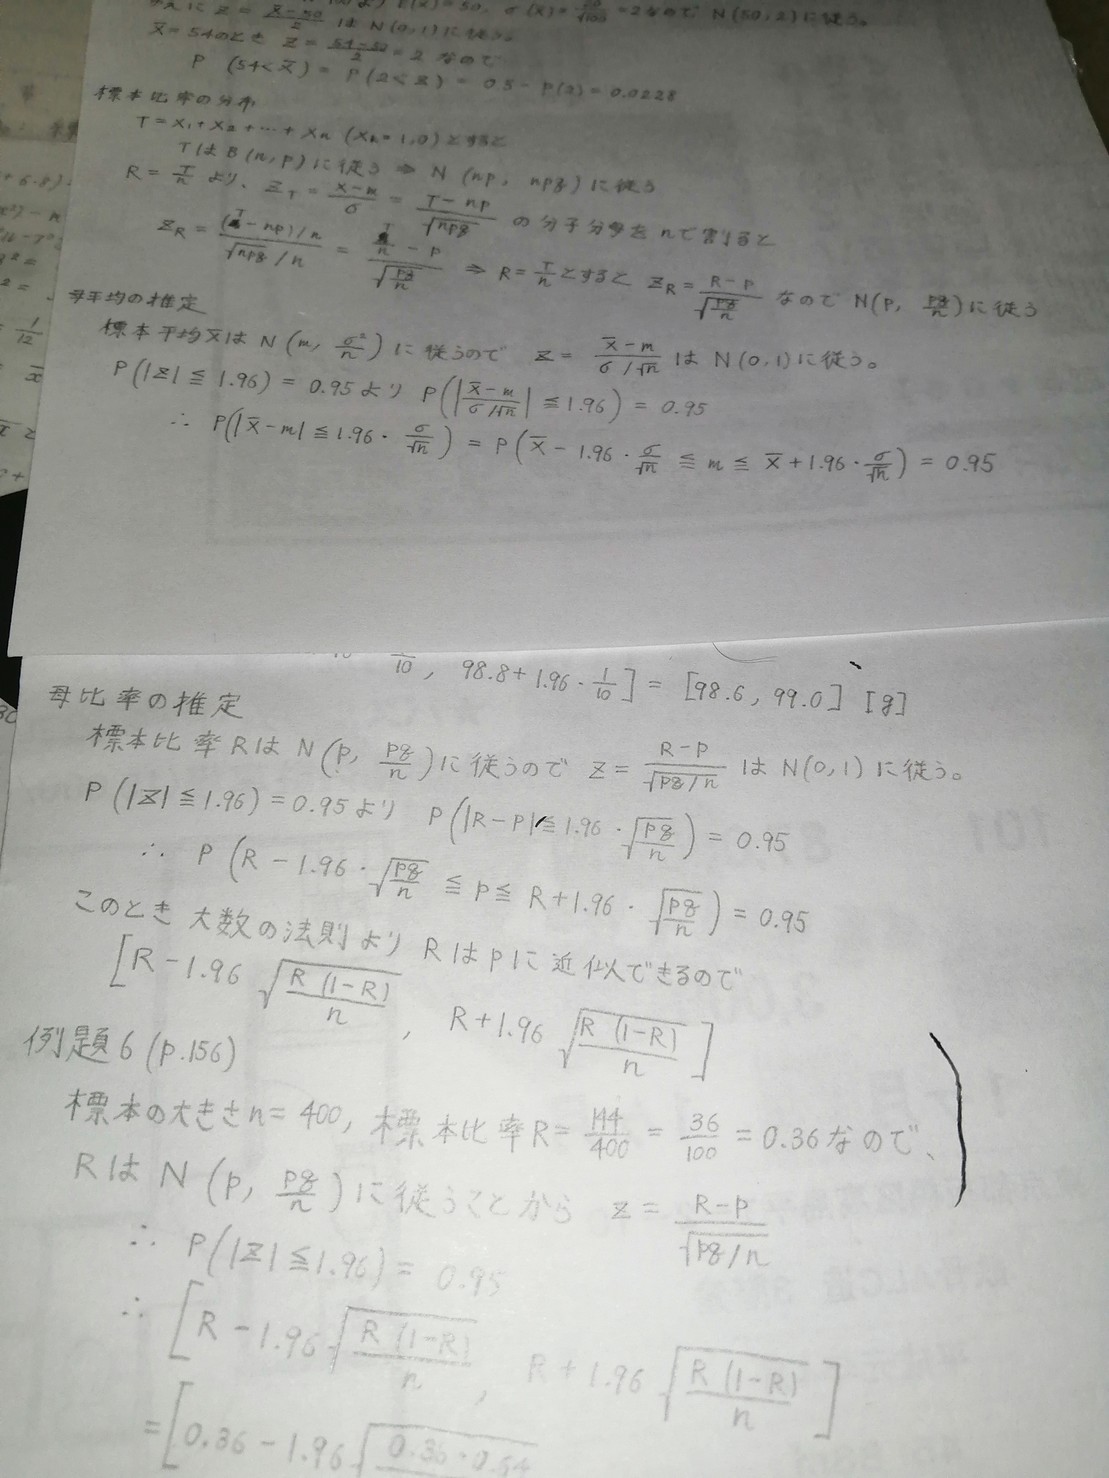 X̄=54のとき Z = (54-50)/2 = 2 なので
P (54<X̄) = P(2<Z) = 0.5 - P(2) = 0.0228
標本比率の分布
T = X₁+X₂+…+Xn (Xk=1,0)とすると
TはB(n,p)に従う ⇒ N(np, npq)に従う
R = T/n より、Z_T = (X-m)/σ = (T-np)/√(npq) の分子分母をnで割ると
Z_R = ((T-np)/n)/(√(npq)/n) = (T/n - p)/√(pq/n) ⇒ R = T/n とすると Z_R = (R-p)/√(pq/n) なので N(p, pq/n)に従う
母平均の推定
標本平均X̄は N(m, σ²/n) に従うので Z = (X̄-m)/(σ/√n) は N(0,1)に従う。
P(|Z|≦1.96) = 0.95より P(|(X̄-m)/(σ/√n)|≦1.96) = 0.95
∴ P(|X̄-m|≦1.96・σ/√n) = P(X̄-1.96・σ/√n ≦ m ≦ X̄+1.96・σ/√n) = 0.95
10, 98.8+1.96・1/10] = [98.6, 99.0] [g]
母比率の推定
標本比率Rは N(p, pq/n)に従うので Z = (R-p)/√(pq/n) は N(0,1)に従う。
P(|Z|≦1.96) = 0.95より P(|R-p|≦1.96・√(pq/n)) = 0.95
∴ P(R-1.96・√(pq/n) ≦ p ≦ R+1.96・√(pq/n)) = 0.95
このとき 大数の法則より Rはpに近似できるので
[R-1.96√(R(1-R)/n), R+1.96√(R(1-R)/n)]
例題6 (p.156)
標本の大きさn=400, 標本比率R = 144/400 = 36/100 = 0.36なので、
Rは N(p, pq/n)に従うことから Z = (R-p)/√(pq/n)
∴ P(|Z|≦1.96) = 0.95
∴ [R-1.96√(R(1-R)/n), R+1.96√(R(1-R)/n)]
= [0.36-1.96√(0.36・0.64